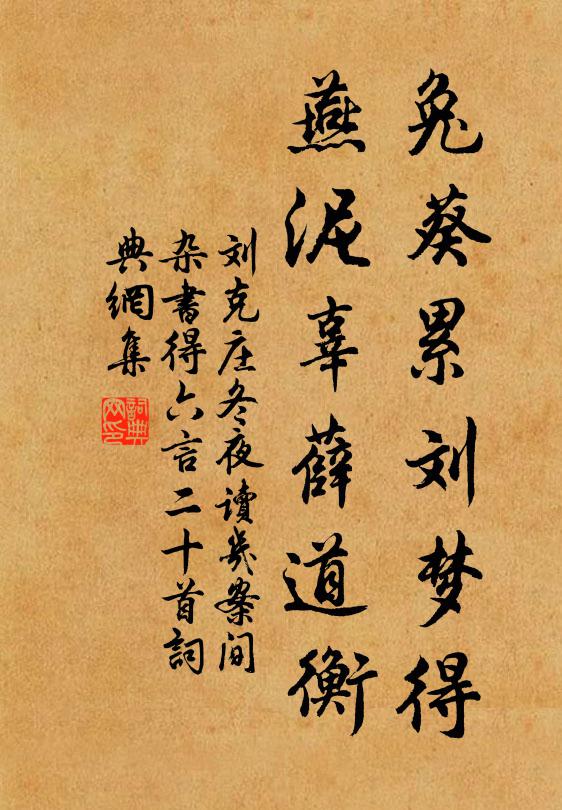 兔葵累刘梦得
燕泥辜薛道衡
刘克庄冬夜讀幾案间
杂書得六言二十首詞
典網集
詞典
网印